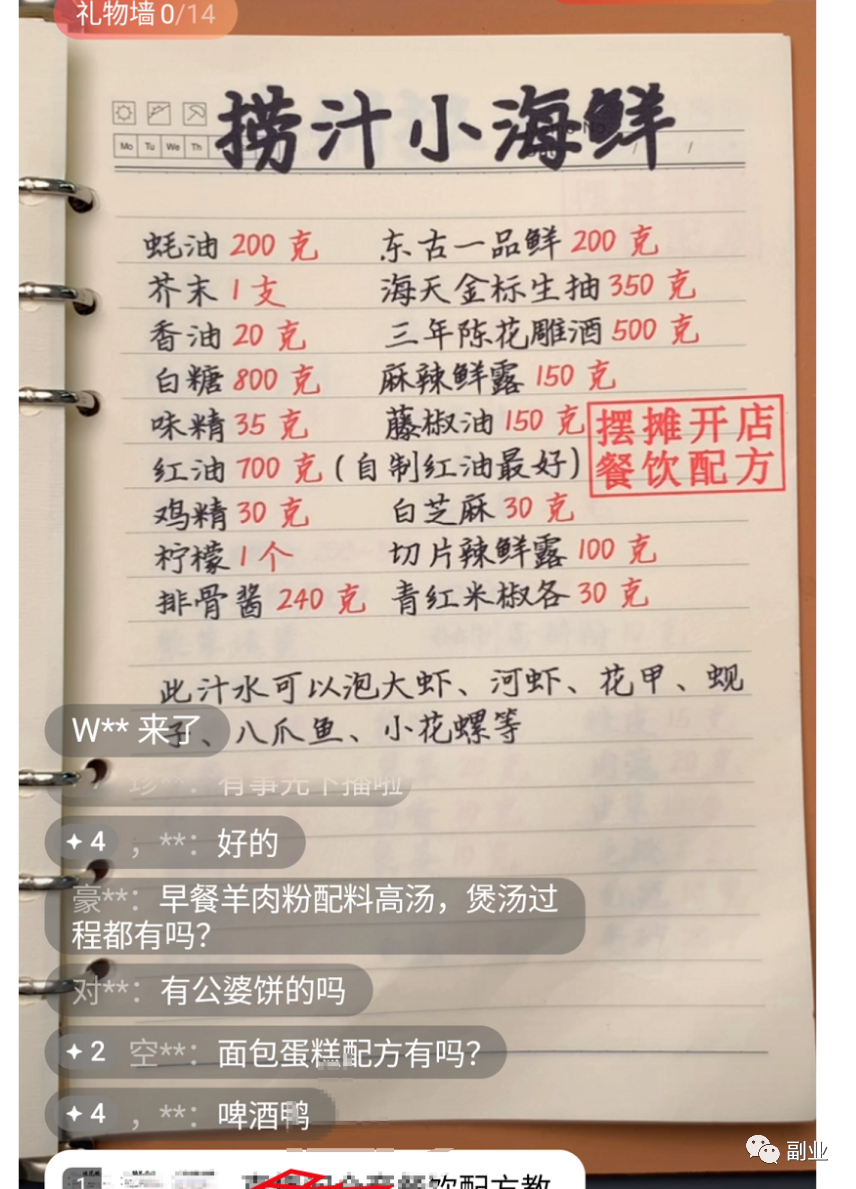 礼物墙0/14
捞汁小海鲜
Mo Tu We Th
蚝油 200 克 东古一品鲜 200 克
芥末 1 支 海天金标生抽 350 克
香油 20 克 三年陈花雕酒 500 克
白糖 800 克 麻辣鲜露 150 克
味精 35 克 藤椒油 150 克
摆摊开店
餐饮配方
红油 700 克 (自制红油最好)
鸡精 30 克 白芝麻 30 克
柠檬 1 个 切片辣鲜露 100 克
排骨酱 240 克 青红米椒各 30 克
此汁水可以泡大虾、河虾、花甲、蚬
子、八爪鱼、小花螺等
W** 来了
珍**：有事先下播啦
4 ，**：好的
豪**：早餐羊肉粉配料高汤，煲汤过
程都有吗？
对**：有公婆饼的吗
2 空**：面包蛋糕配方有吗？
4 ，**：啤酒鸭
副业
1
饮配方教